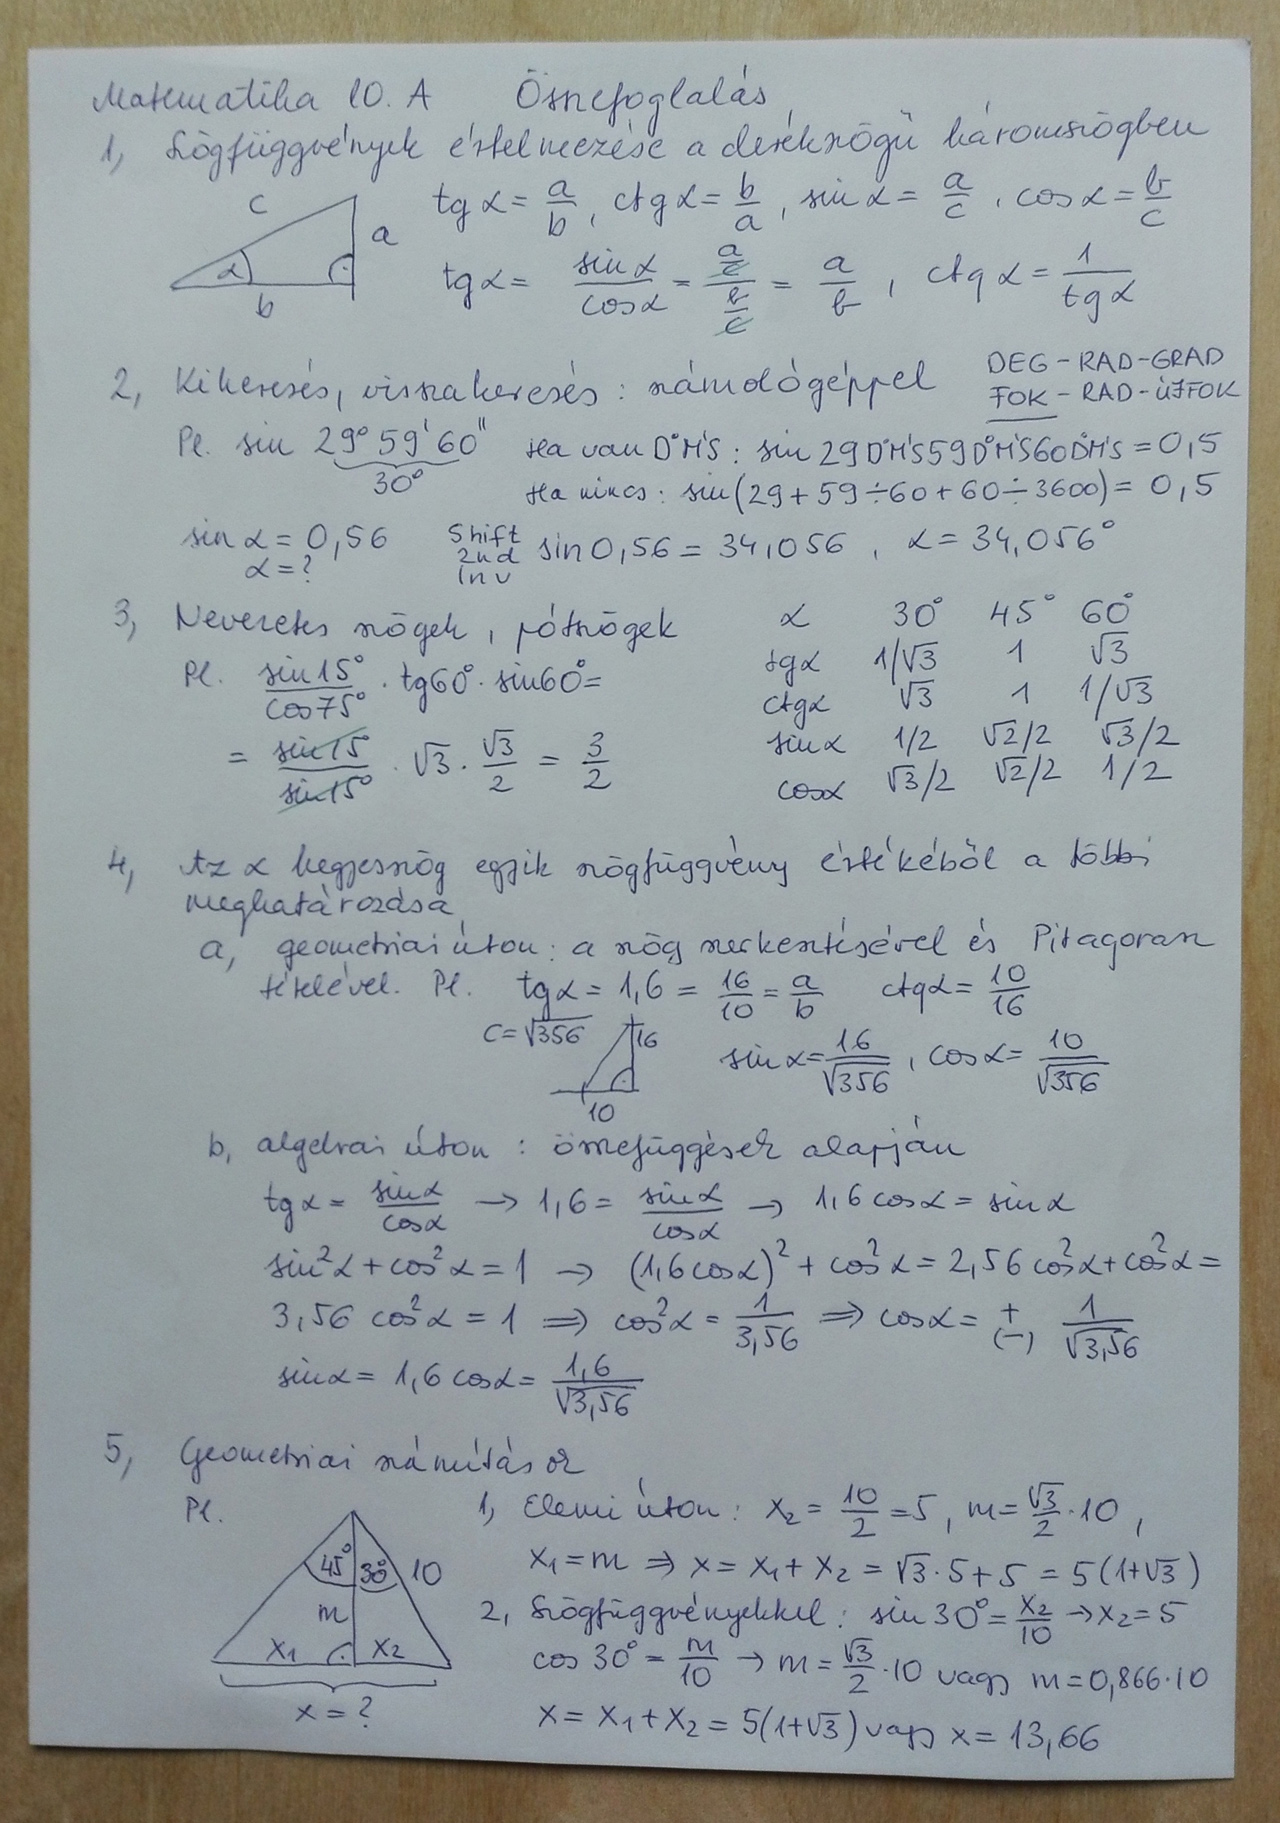 Matematika 10. A Összefoglalás
1, Szögfüggvények értelmezése a derékszögű háromszögben
c a α b
tg α = a/b, ctg α = b/a, sin α = a/c, cos α = b/c
tg α = sin α / cos α = (a/c)/(b/c) = a/b, ctg α = 1/tg α
2, Kikeresés, visszakeresés: számológéppel
DEG - RAD - GRAD
FOK - RAD - ÚJFOK
Pl. sin 29° 59' 60" Ha van D°M'S: sin 29 D°M'S 59 D°M'S 60 D°M'S = 0,5
30° Ha nincs: sin(29 + 59 ÷ 60 + 60 ÷ 3600) = 0,5
sin α = 0,56 Shift 2nd Inv sin 0,56 = 34,056, α = 34,056°
α = ?
3, Nevezetes szögek, pótszögek
Pl. sin 15° / cos 75° · tg 60° · sin 60° =
= sin 15 / sin 15° · √3 · √3/2 = 3/2
α 30° 45° 60°
tg α 1/√3 1 √3
ctg α √3 1 1/√3
sin α 1/2 √2/2 √3/2
cos α √3/2 √2/2 1/2
4, Az α hegyesszög egyik szögfüggvény értékéből a többi
meghatározása
a, geometriai úton: a szög szerkesztésével és Pitagorasz
tételével. Pl. tg α = 1,6 = 16/10 = a/b ctg α = 10/16
c = √356 16 10
sin α = 16/√356, cos α = 10/√356
b, algebrai úton: összefüggések alapján
tg α = sin α / cos α → 1,6 = sin α / cos α → 1,6 cos α = sin α
sin² α + cos² α = 1 → (1,6 cos α)² + cos² α = 2,56 cos² α + cos² α =
3,56 cos² α = 1 ⇒ cos² α = 1/3,56 ⇒ cos α = + (-) 1/√3,56
sin α = 1,6 cos α = 1,6/√3,56
5, Geometriai számítások
Pl.
45° 30° 10
m
x₁ x₂
x = ?
1, Elemi úton: x₂ = 10/2 = 5, m = √3/2 · 10,
x₁ = m ⇒ x = x₁ + x₂ = √3 · 5 + 5 = 5(1+√3)
2, Szögfüggvényekkel: sin 30° = x₂/10 → x₂ = 5
cos 30° = m/10 → m = √3/2 · 10 vagy m = 0,866 · 10
x = x₁ + x₂ = 5(1+√3) vagy x = 13,66